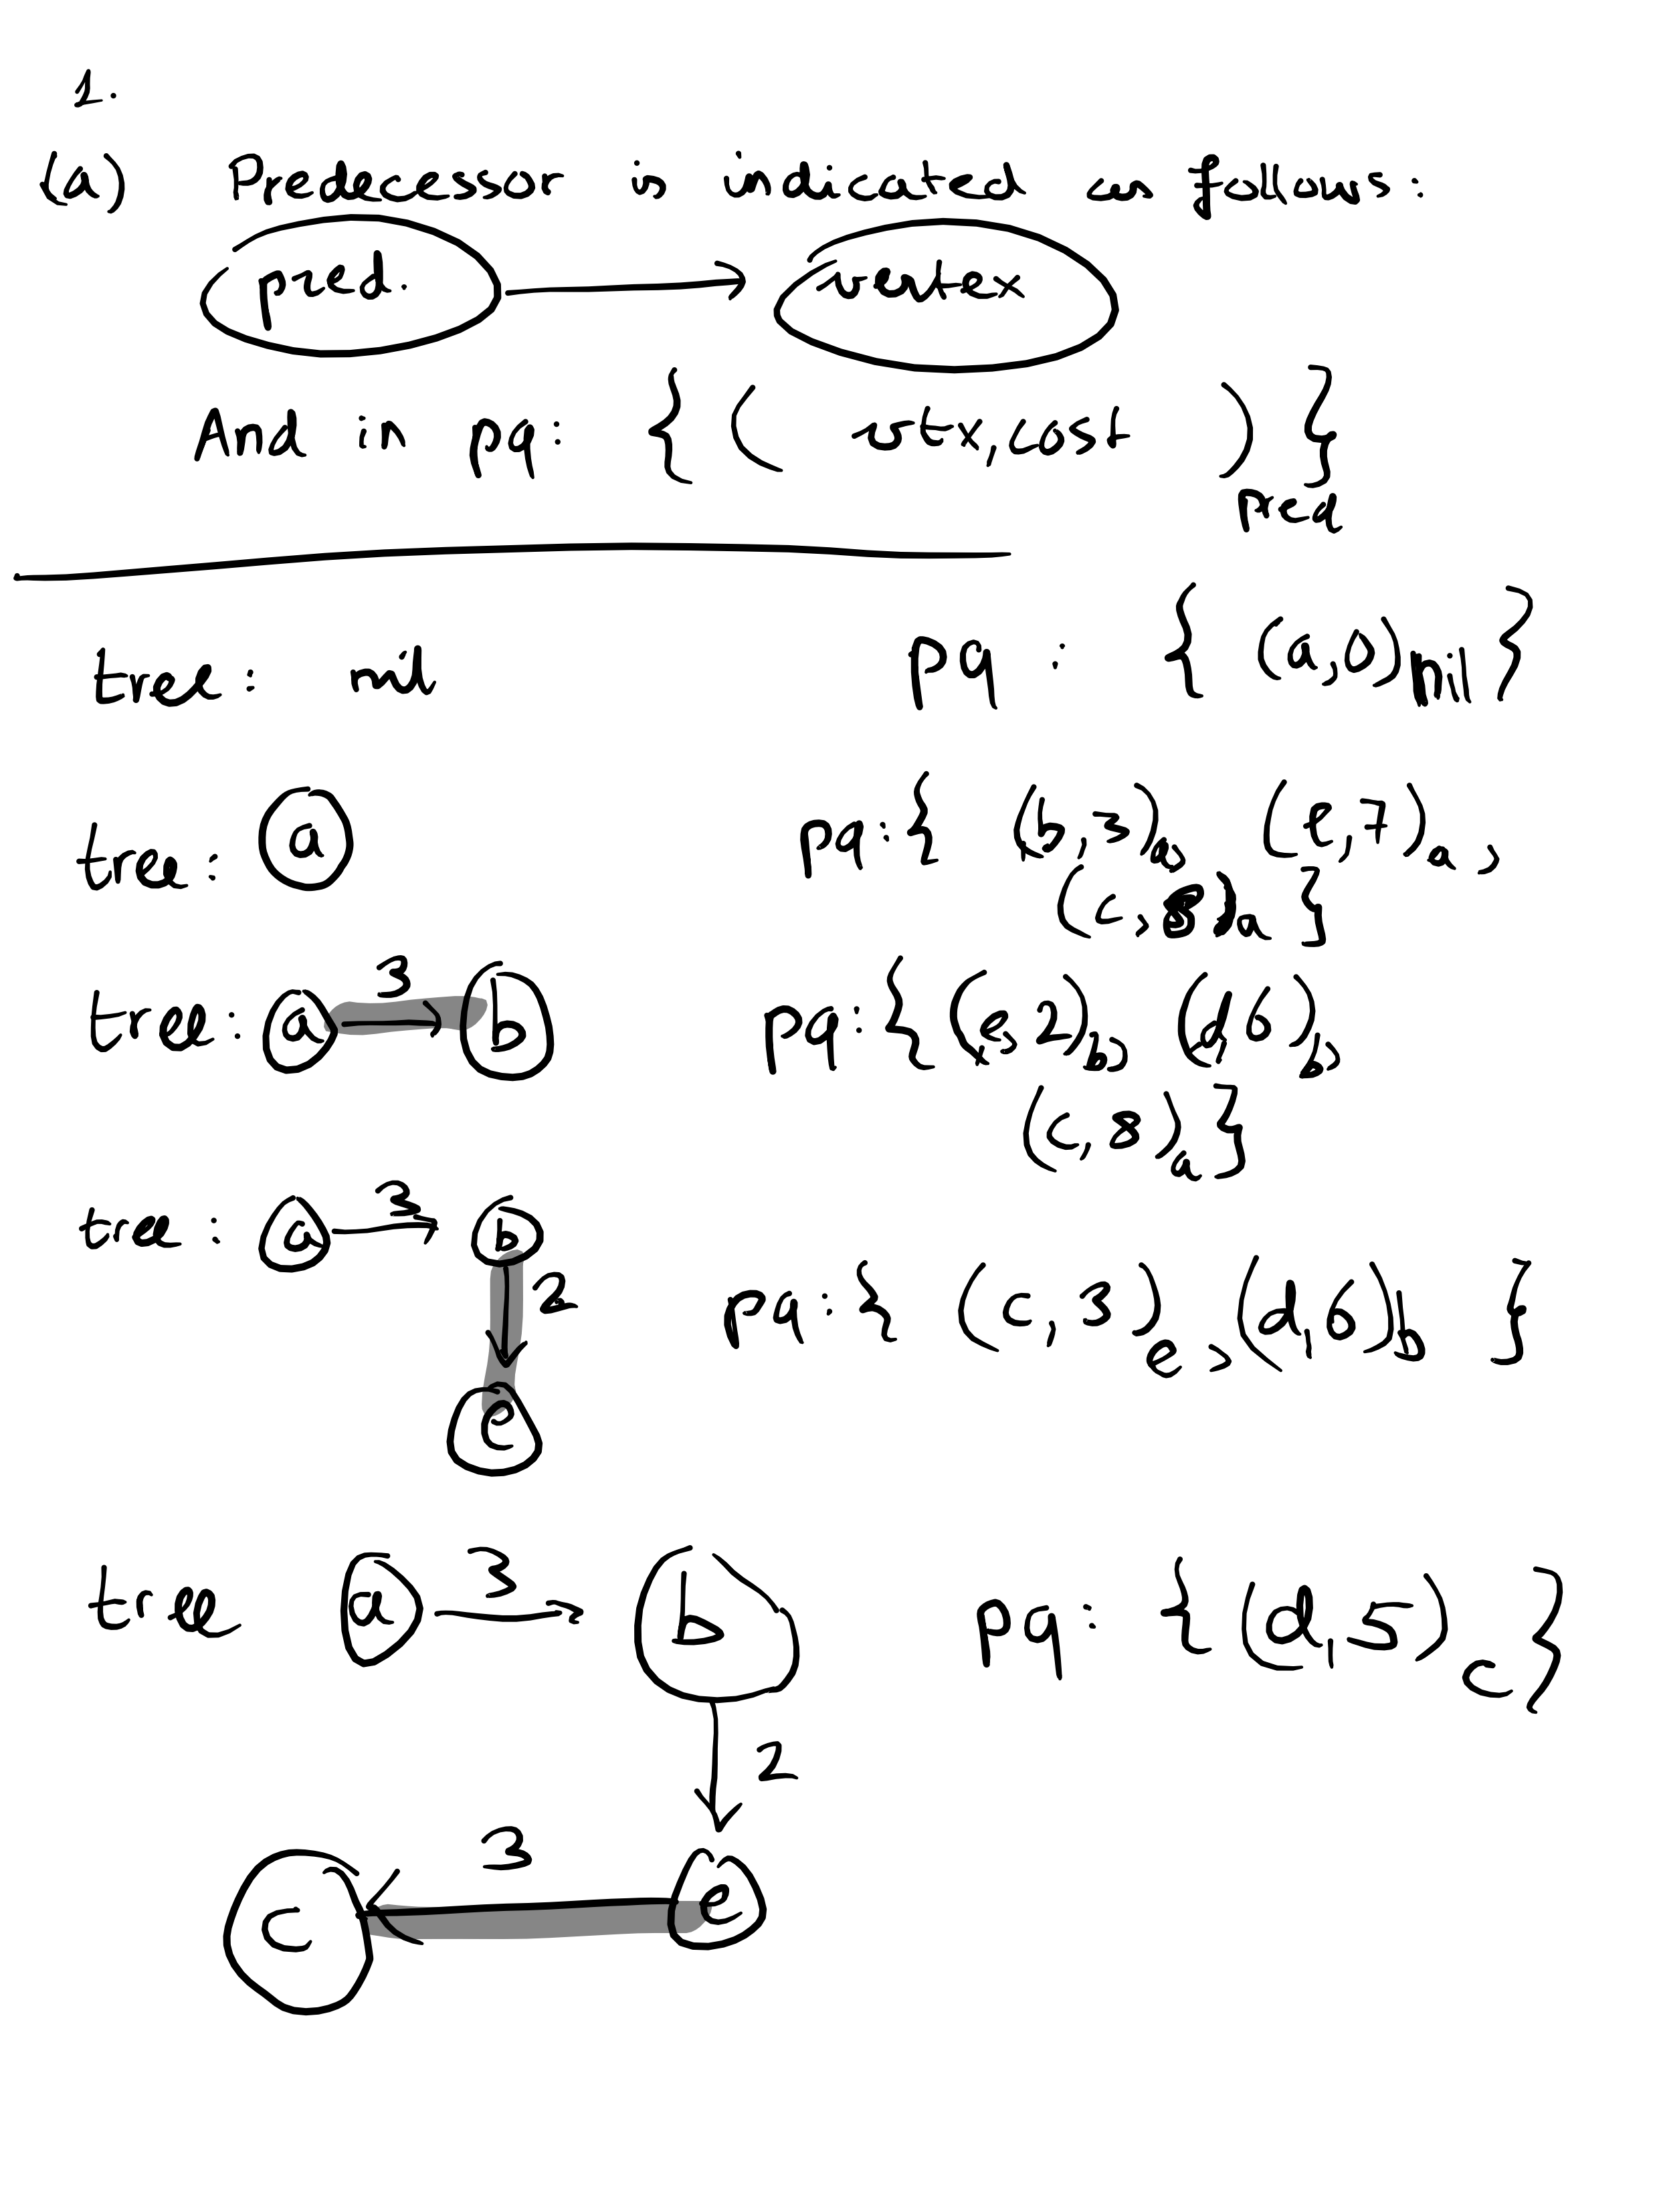 1.
(a) Predecessor is indicated as follows:
pred. vertex
And in pq: { ( vtx, cost ) }
pred
tree: nil pq : { (a,0)nil }
tree: a pq:{ (b,3)a, (e,7)a,
(c,8)a }
3
tree: a b pq:{ (e,2)b, (d,6)b,
(c,8)a }
3
tree : a b
2 pq:{ (c,3)e, (d,6)b }
e
3
tree a b pq: { (d,5)c }
2
3
c e